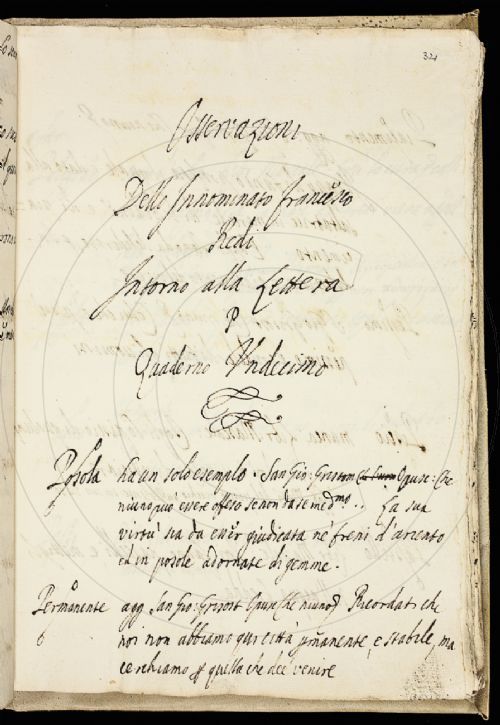 324
Osservazioni
Dello Innominato Francesco
Redi
Intorno alla Lettera
P
Quaderno Undecimo
Posola ha un solo esempio. San Gio: Grisostom Opusc: Che
niuno può essere offeso se non da se medmo.. La sua
virtù sia da esser giudicata nè freni d'argento
ed in posole adornate di gemme.
Permanente agg San Gio: Grisost Opusc Che niuno Ricordati che
noi non abbiamo qui città permanente, e stabile, ma
cerchiamo quella che dee venire